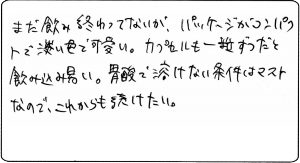 まだ飲み終わってないが、パッケージがコンパク
トで淡い色で可愛い。カプセルも一粒ずつだと
飲み込み易い。胃酸で溶けない条件はマスト
なので、これからも続けたい。